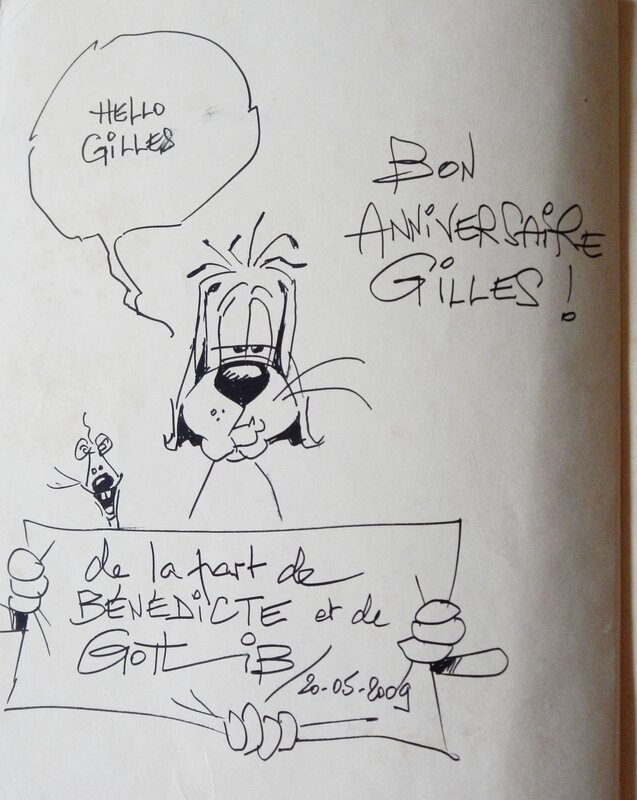 HELLO
GiLLES
BON
ANNiVERSAiRE
GiLLES !
de la part de
BÉNÉDiCTE et de
GOTLiB
20-05-2009